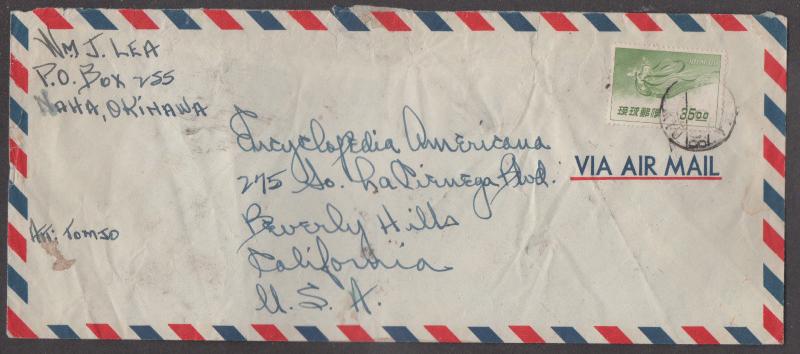 Wm J. LEA
P.O. Box 255
NAHA, OKINAWA
琉球郵便
35.00
VIA AIR MAIL
Encyclopedia Americana
275 So. La Cienega Blvd.
Beverly Hills
California
U.S.A.